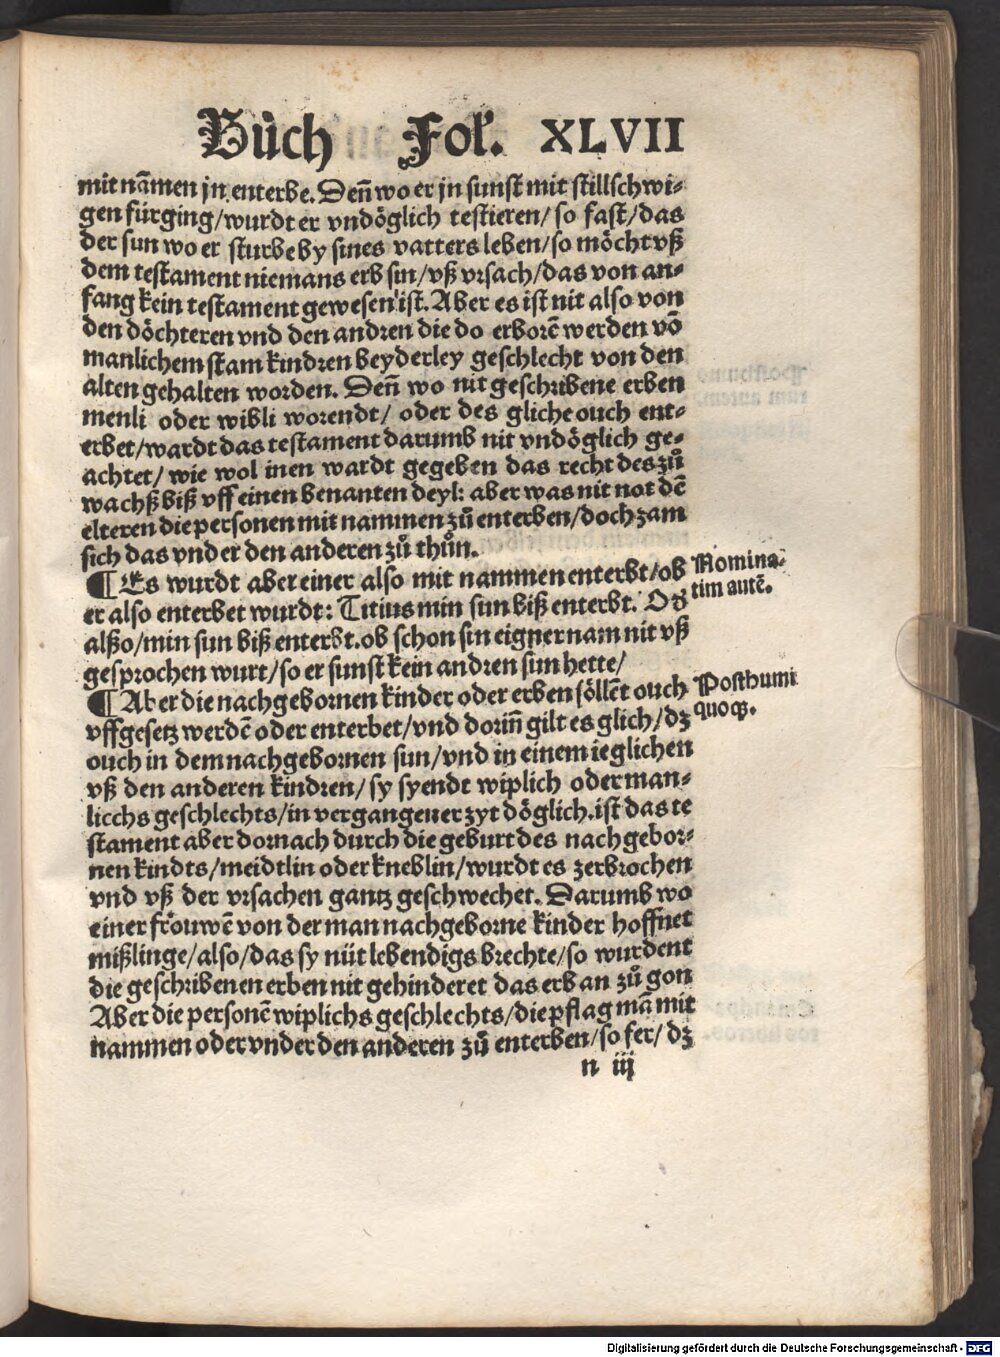 Bůch Fol. XLVII
mit nãmen jn enterbe. Deñ wo er jn sunst mit stillschwi-
gen fürging/wurdt er vndöglich testieren/so fast/das
der sun wo er sturbe by sines vatters leben/so möcht vß
dem testament niemans erb sin/vß vrsach/das von an-
fang kein testament gewesen ist. Aber es ist nit also von
den döchteren vnd den andren die do erborẽ werden võ
manlichem stam kindren beyderley geschlecht von den
alten gehalten worden. Deñ wo nit geschribene erben
menli oder wibli worendt/ oder des gliche ouch ent-
erbet/wardt das testament darumb nit vndöglich ge-
achtet/ wie wol inen wardt gegeben das recht des zů
wachß biß vff einen benanten deyl: aber was nit not dẽ
elteren die personen mit nammen zů enterben/doch zam
sich das vnder den anderen zů thůn.
¶ Es wurdt aber einer also mit nammen enterbt/ob
Nomina-
tim autẽ.
er also enterbet wurdt: Titius min sun biß enterbt. Oď
alßo/min sun biß enterbt. ob schon sin eigner nam nit vß
gesprochen wurt/so er sunst kein andren sun hette/
¶ Aber die nachgebornen kinder oder erben söllẽt ouch
Posthumi
quoqꝫ.
vffgesetz werdẽ oder enterbet/vnd doriñ gilt es glich/dꝫ
ouch in dem nachgebornen sun/vnd in einem ieglichen
vß den anderen kindren/sy syendt wiplich oder man-
licchs geschlechts/in vergangener zyt döglich. ist das te
stament aber dornach durch die geburt des nachgebor-
nen kindts/meidtlin oder kneblin/wurdt es zerbrochen
vnd vß der vrsachen gantz geschwechet. Darumb wo
einer fröuwẽ von der man nachgeborne kinder hoffnet
mißlinge/also/das sy nüt lebendigs brechte/so wurdent
die geschribenen erben nit gehinderet das erb an zů gon
Aber die personẽ wiplichs geschlechts/die pflag mã mit
nammen oder vnder den anderen zů enterben/so fer/dꝫ
n iij
Digitalisierung gefördert durch die Deutsche Forschungsgemeinschaft - DFG